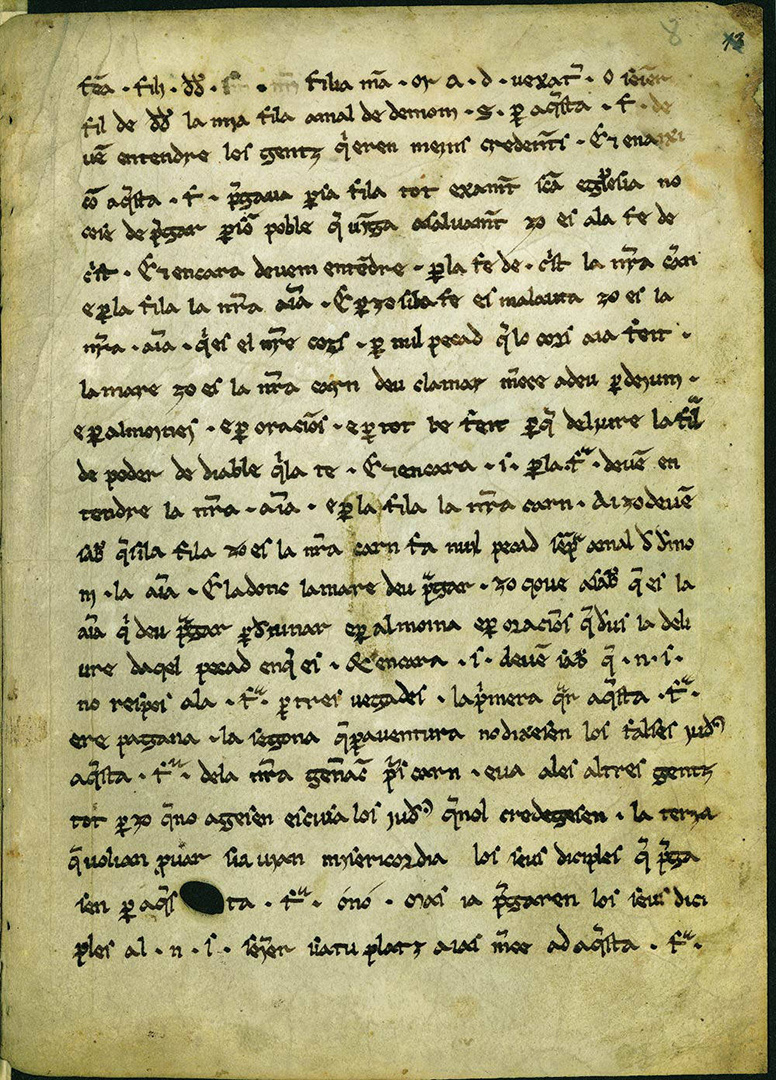 8 13
fẽa · fili · dđ · filia mã · or a · d · uexat᷑ · O
fil de dđ la mia fila amal de demoni · S · ꝑ aq̃sta · f · de
uẽ entendre los gentz q̃ eren menis credentz · Et ena
cõ aq̃sta · f · p̃gaua ꝑ sa fila tot examt̃ scã eglesia no
cese de p̃gar ꝑ sõ poble q̃ uẽga asaluamt̃ zo es ala fe de
c̃st · Et encara deuem entẽdre · ꝑ la fe de · c̃st la nr̃a
e ꝑ la fila la nr̃a aĩa · E ꝑ zo sila fe es malauta zo es la
nr̃a · aĩa · q̃ es el nr̃e cors · ꝑ nul pecad q̃ lo cors aia feit ·
la mare zo es la nr̃a carn deu clamar m̃ce a deu ꝑ deiuni ·
e ꝑ almornes · e ꝑ oraciõs · e ꝑ tot be feit ꝑ q̃ deliure la fila
de poder de diable q̃ la te · Et encara · s · ꝑ la · fᵃ · deuẽ en
tendre la nr̃a · aĩa · e ꝑ la fila la nr̃a carn · Aizo deuẽ
sab̃ q̃ si la fila zo es la nr̃a carn fa nul pecad semp̃ amal đ đmo
ni · la aĩa · E ladonc la mare deu p̃gar · zo coue asab̃ q̃ es la
aĩa q̃ deu p̃gar ꝑ điunar e ꝑ almoina e ꝑ oraciõs q̃ đus la deli
ure daqel pecad en q̃ es · & encara · s · deuẽ sab̃ q̃ · n · s ·
no respos ala · fᵃ · ꝑ tres uegades · la p̃mera q̃r aq̃sta · fᵃ ·
ere pagana · la segona q̃ ꝑ auentura no dixesen los falses iuđꝰ
aq̃sta · fᵃ · dela nr̃a gen̄acĩ p̃s carn · e ua ales altres gentz
tot ꝑ zo q̃ no agesen escusa los iuđꝰ q̃ nol credegesen · la terza
q̃ uolian puar si auian misericordia los seus diciples q̃ p̃ga
sen ꝑ aq̃s ta · fᵃ · o nó · Mas ia p̃garen los seus dici
ples al · n · s · seỹer si atu platz aias m̃ce ad aq̃sta · fᵃ ·